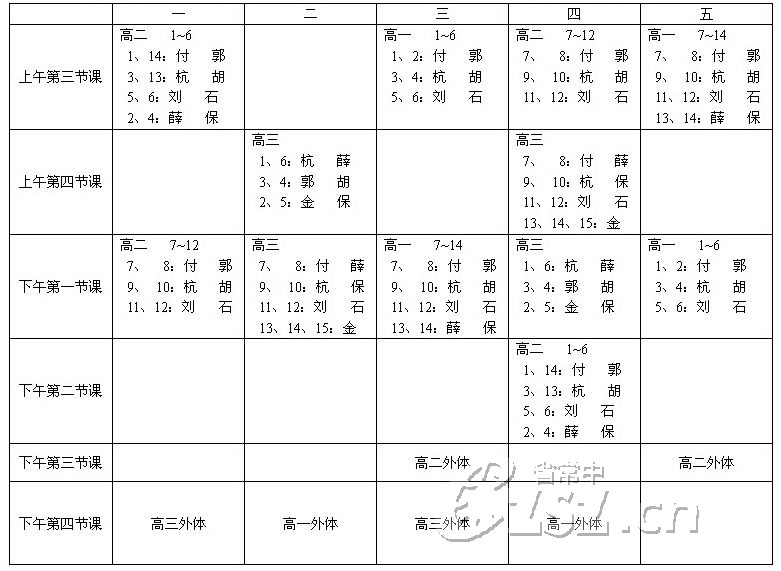 一 二 三 四 五
上午第三节课
高二 1~6
1、14：付 郭
3、13：杭 胡
5、6：刘 石
2、4：薛 保
高一 1~6
1、2：付 郭
3、4：杭 胡
5、6：刘 石
高二 7~12
7、 8：付 郭
9、 10：杭 胡
11、12：刘 石
高一 7~14
7、 8：付 郭
9、 10：杭 胡
11、12：刘 石
13、14：薛 保
上午第四节课
高三
1、6：杭 薛
3、4：郭 胡
2、5：金 保
高三
7、 8：付 薛
9、 10：杭 保
11、12：刘 石
13、14、15：金
下午第一节课
高二 7~12
7、 8：付 郭
9、 10：杭 胡
11、12：刘 石
高三
7、 8：付 薛
9、 10：杭 保
11、12：刘 石
13、14、15：金
高一 7~14
7、 8：付 郭
9、 10：杭 胡
11、12：刘 石
13、14：薛 保
高三
1、6：杭 薛
3、4：郭 胡
2、5：金 保
高一 1~6
1、2：付 郭
3、4：杭 胡
5、6：刘 石
下午第二节课
高二 1~6
1、14：付 郭
3、13：杭 胡
5、6：刘 石
2、4：薛 保
下午第三节课
高二外体
高二外体
下午第四节课
高三外体
高一外体
高三外体
高一外体
省常中
.cn